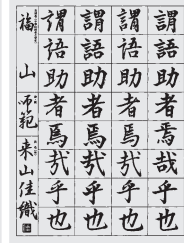 謂語助者焉哉乎也
謂語助者焉哉乎也
謂語助者焉哉乎也
謂語助者焉哉乎也
福山 師範 来山佳織